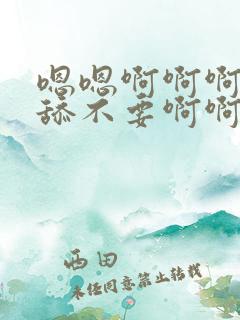 嗯嗯啊啊啊
舔不要啊啊
西田
未经同意禁止转载